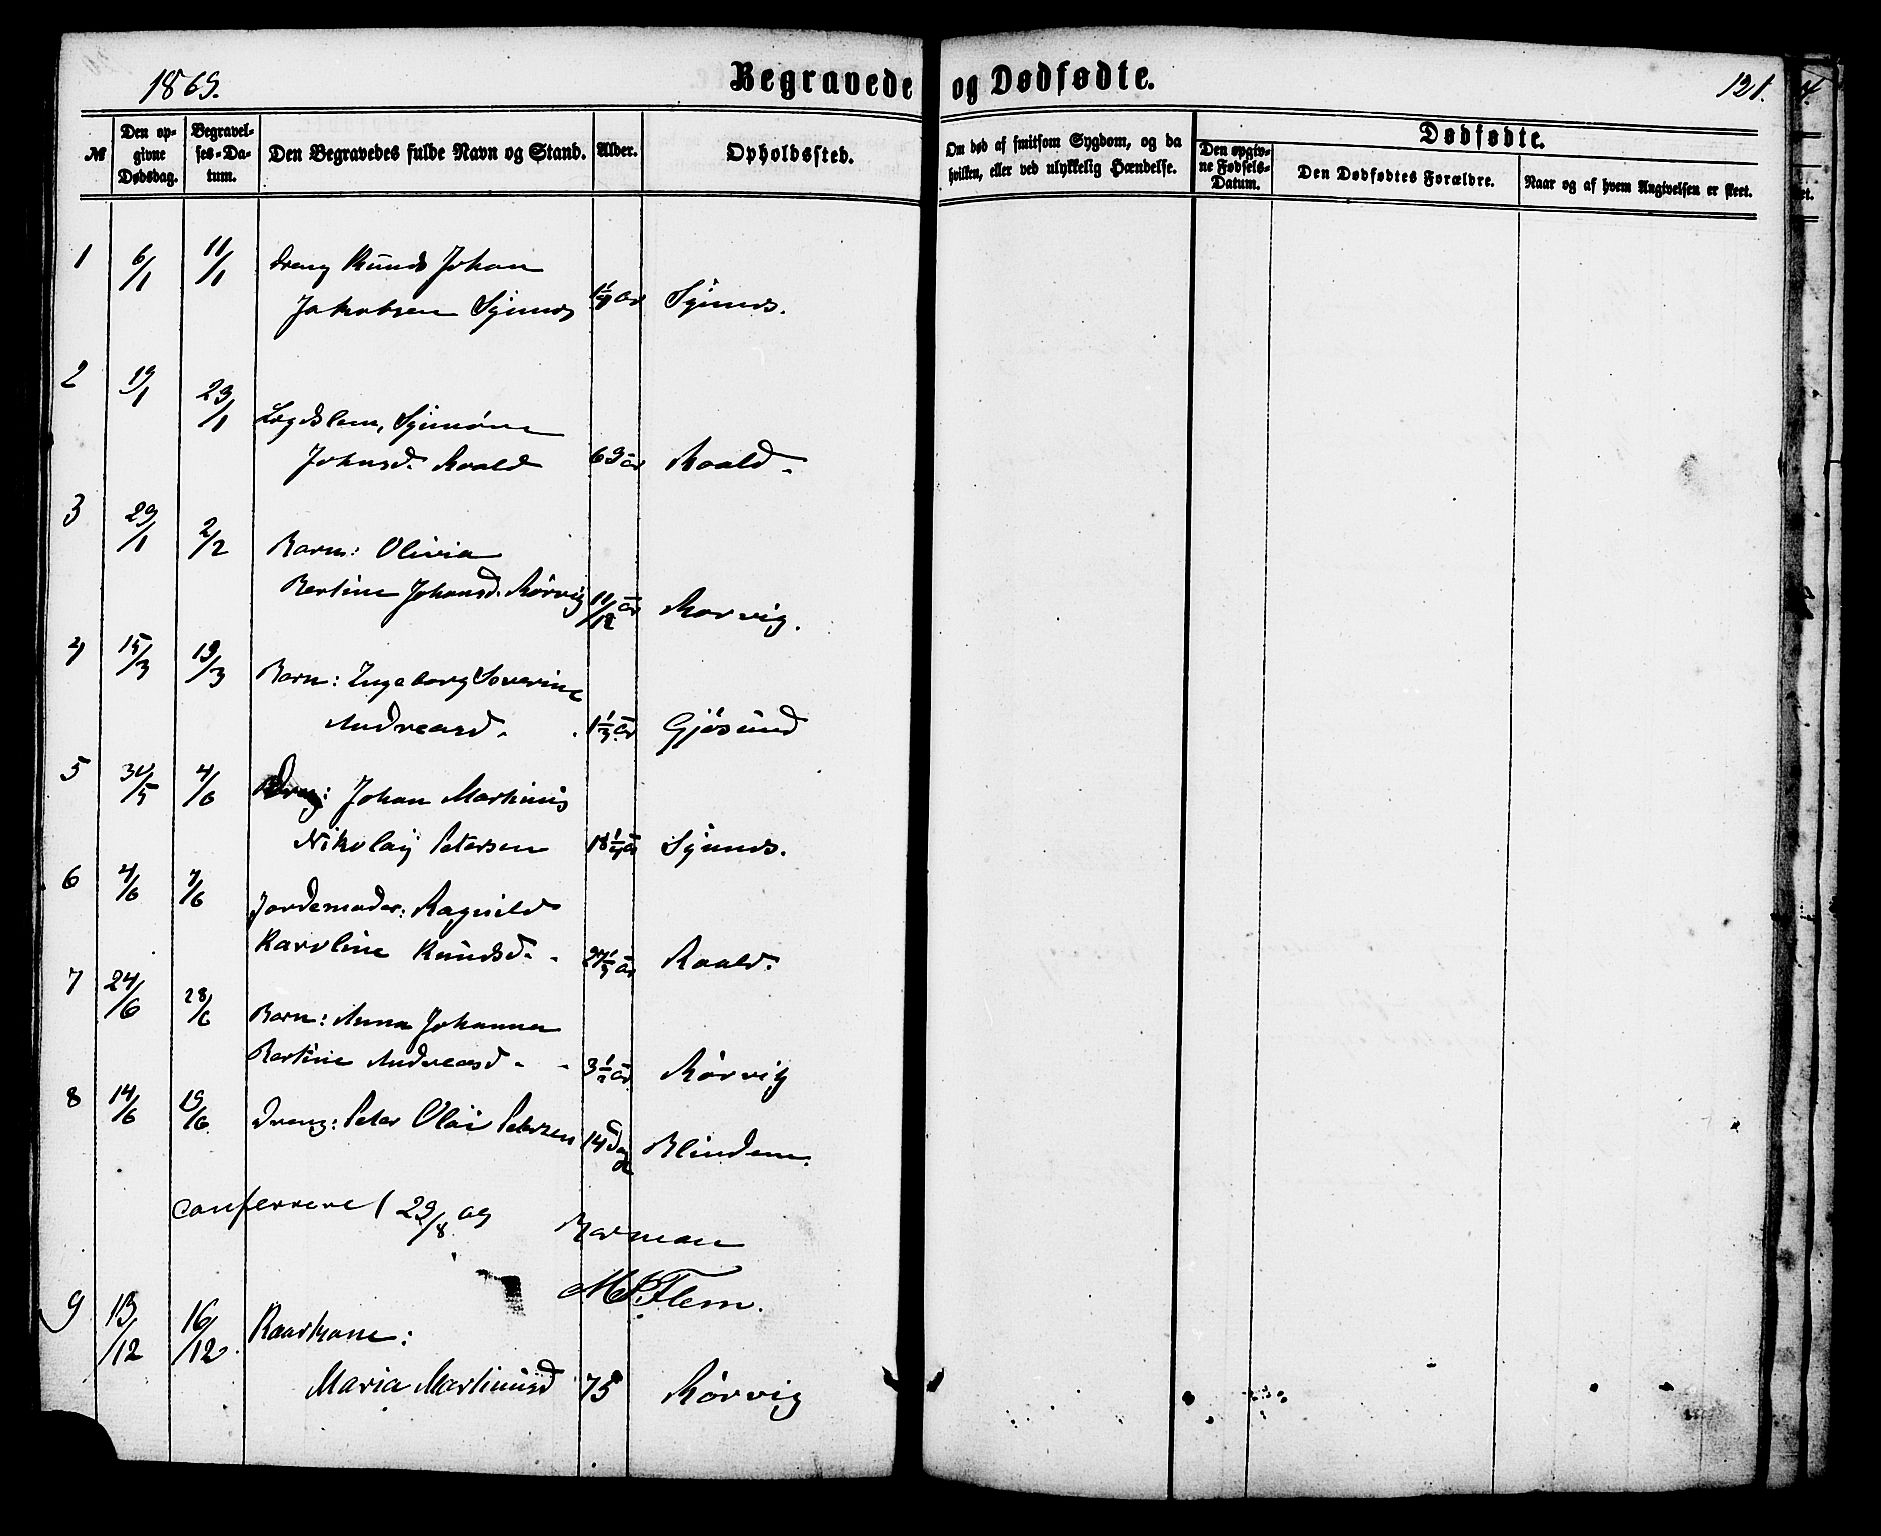 1869.
Begravede og Dødfødte.
121.
№
Den opgivne Dødsdag.
Begravelses-Datum.
Den Begravedes fulde Navn og Stand.
Alder.
Opholdssted.
Om død af smitsom Sygdom, og da hvilken, eller ved ulykkelig Hændelse.
Dødfødte.
Den opgivne Fødsels-Datum.
Den Dødfødtes Forældre.
Naar og af hvem Angivelsen er skeet.
1 6/1 11/1 Dreng Knud Johan
Jakobsen Synnes 1 1/4 år Synnes.
2 19/1 23/1 Lægdslem, Synnøve
Johnsd. Roald 69 år Roald.
3 29/1 2/2 Barn: Olivia
Bertine Johansd. Rørvig 11/12 år Rørvig.
4 15/3 19/3 Barn: Ingeborg Severine
Andreasd. 1 1/3 år Gjøsund
5 31/5 4/6 Dreng: Johan Martinus
Nikolaij Petersen 18 1/4 år Synnes.
6 4/6 7/6 Jordemoder: Ragnild
Karoline Knudsd. år Roald.
7 24/6 28/6 Barn: Anna Johanna
Bertine Andreasd. 3 1/2 år Rørvig
8 14/6 19/6 Dreng: Peter Olai Petersen 14 Dage Blindem.
Conferrere 29/8 69 Barman
M. Flem.
9 13/12 16/12 Kaarkone:
Maria Martinusd 75 Rørvig